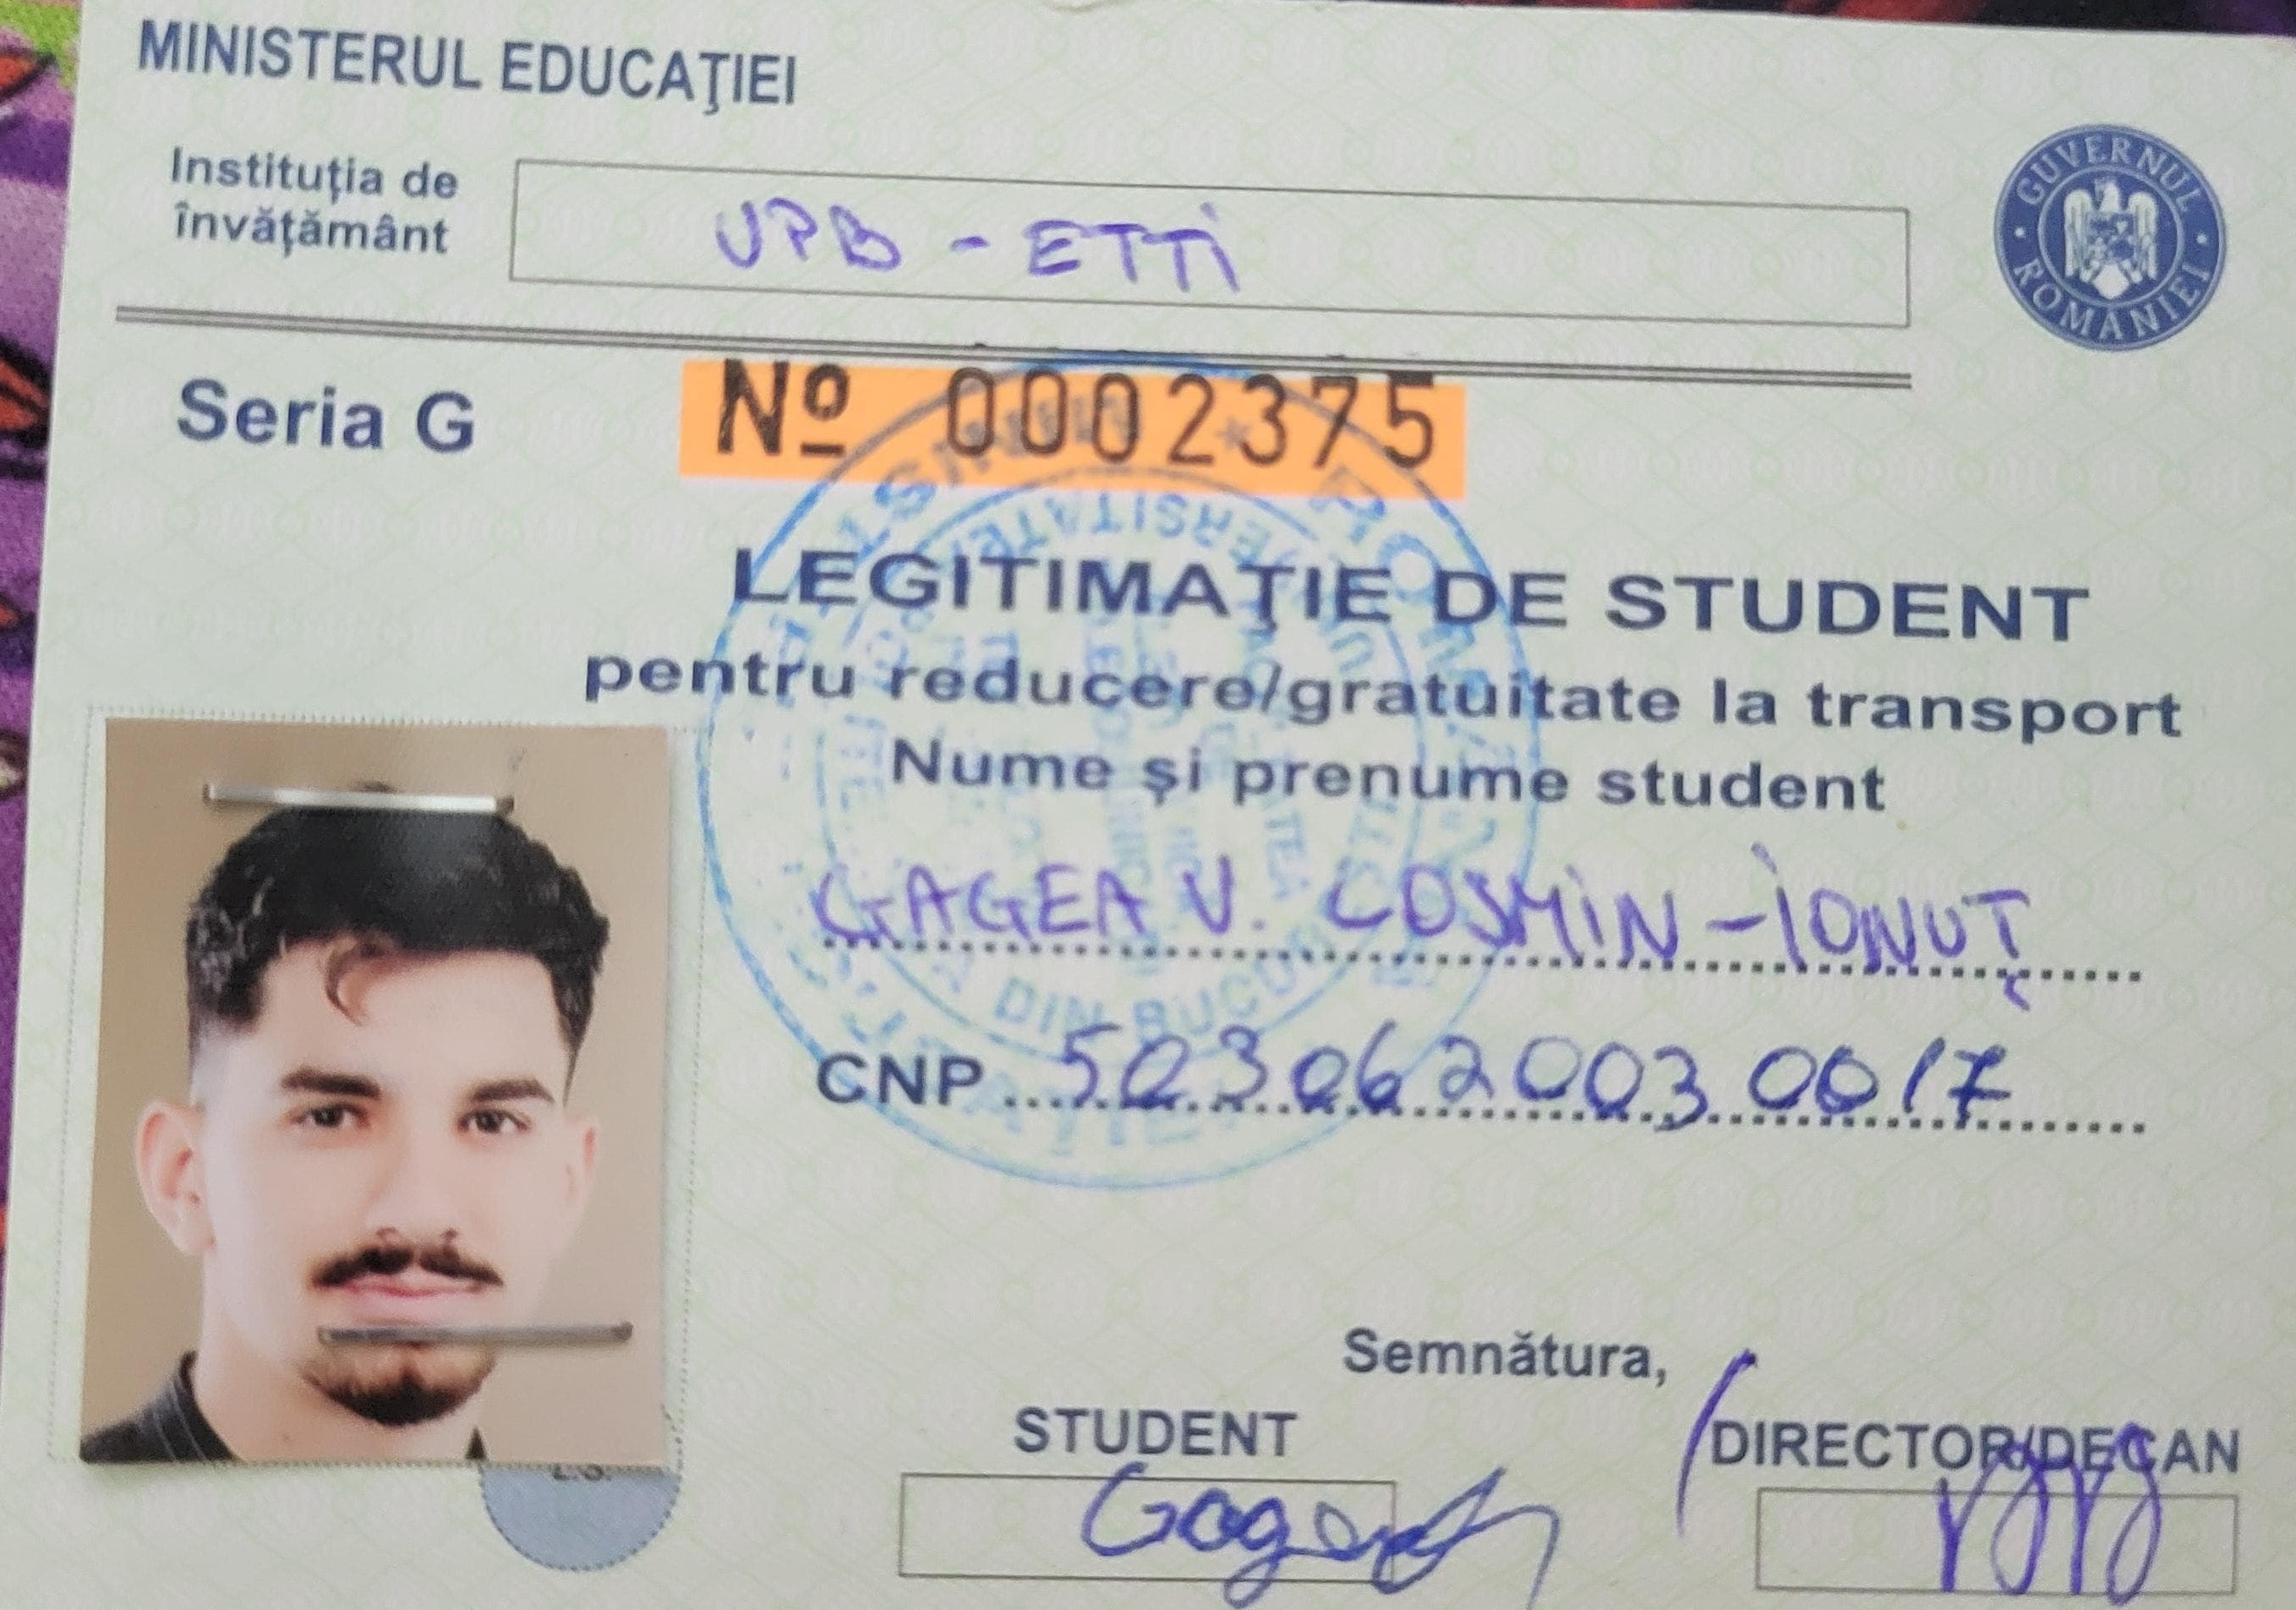 MINISTERUL EDUCAŢIEI
Instituţia de
învăţământ
UPB - ETTI
GUVERNUL ROMÂNIEI
Seria G
Nº 0002375
LEGITIMAŢIE DE STUDENT
pentru reducere/gratuitate la transport
Nume şi prenume student
GAGEA V. COSMIN-IONUȚ
CNP 5030620030017
Semnătura,
STUDENT
DIRECTOR/DECAN
Gagea
L.S.